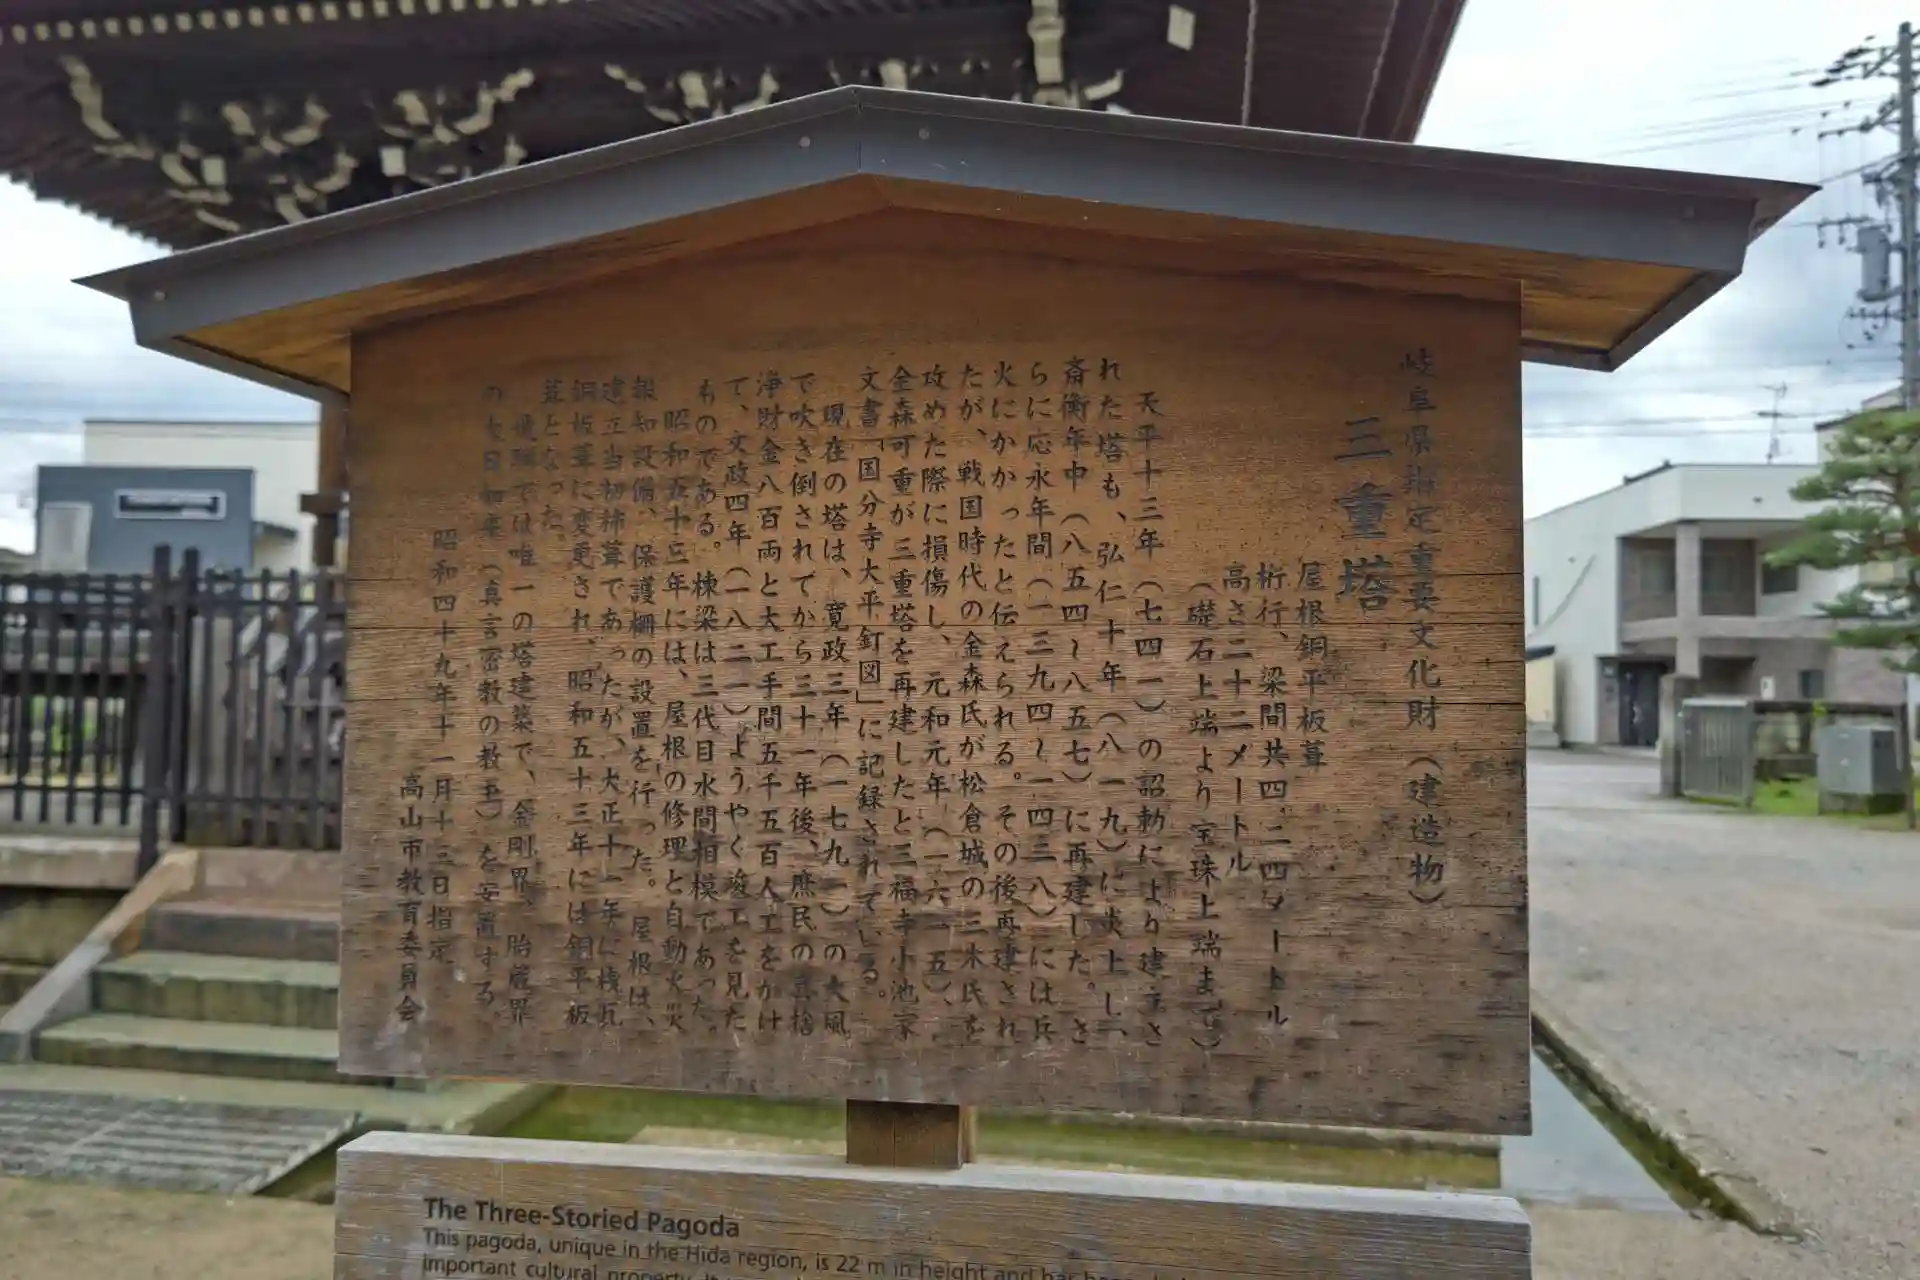 岐阜県指定重要文化財（建造物）
三重塔
屋根銅平板葺
桁行、梁間共四.二四メートル
高さ二十二メートル
（礎石上端より宝珠上端まで）
天平十三年（七四一）の詔勅により建立さ
れた塔も、弘仁十年（八一九）に炎上し、
斎衡年中（八五四〜八五七）に再建した。さ
らに応永年間（一三九四〜一四三八）には兵
火にかかったと伝えられる。その後再建され
たが、戦国時代の金森氏が松倉城の三木氏を
攻めた際に損傷し、元和元年（一六一五）、
金森可重が三重塔を再建したと三福寺小池家
文書「国分寺大平釘図」に記録されている。
現在の塔は、寛政三年（一七九一）の大風
で吹き倒されてから三十一年後、庶民の喜捨
浄財金八百両と大工手間五千五百人工をかけ
て、文政四年（一八二一）ようやく竣工を見た
ものである。棟梁は三代目水間相模であった。
昭和五十三年には、屋根の修理と自動火災
報知設備、保護柵の設置を行った。屋根は、
建立当初柿葺であったが、大正十一年に桟瓦
銅板葺に変更され、昭和五十三年には銅平板
葺となった。
飛騨では唯一の塔建築で、金剛界、胎蔵界
の大日如来（真言密教の教主）を安置する。
昭和四十九年十一月十三日指定
高山市教育委員会
The Three-Storied Pagoda
This pagoda, unique in the Hida region, is 22 m in height and has
important cultural property.